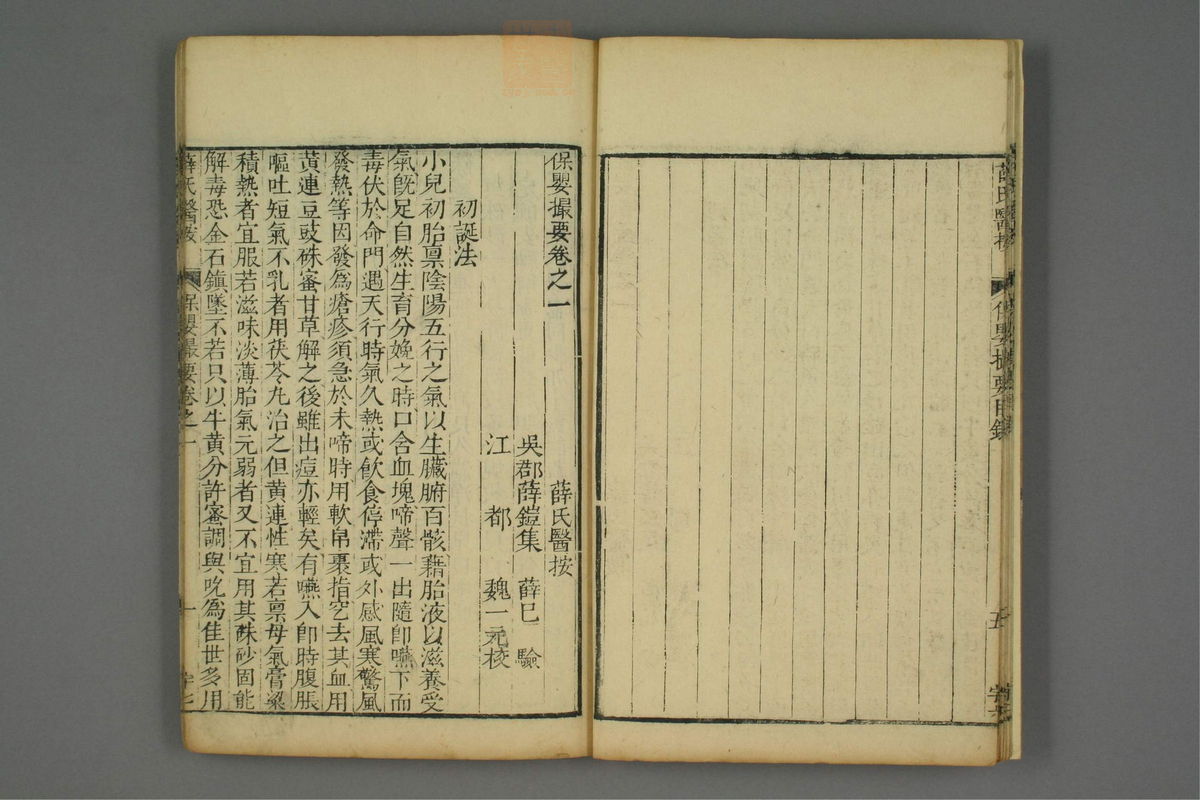 保嬰撮要目錄
五
保嬰撮要卷之一　薛氏醫按
吳郡薛鎧集　薛巳　驗
江　都　魏一元校
初誕法
小兒初胎禀陰陽五行之氣以生臟腑百骸藉胎液以滋養受
氣旣足自然生育分娩之時口含血塊啼聲一出隨卽嚥下而
毒伏於命門遇天行時氣久熱或飮食停滯或外感風寒驚風
發熱等因發爲瘡疹須急於未啼時用軟帛裹指空去其血用
黃連豆豉硃蜜甘草解之後雖出痘亦輕矣有嚥入卽時腹脹
嘔吐短氣不乳者用茯苓丸治之但黃連性寒若禀母氣膏粱
積熱者宜服若滋味淡薄胎氣元弱者又不宜用其硃砂固能
解毒恐金石鎭墜不若只以牛黃分許蜜調與吮爲佳世多用
薛氏醫按
保嬰撮要卷之一
一